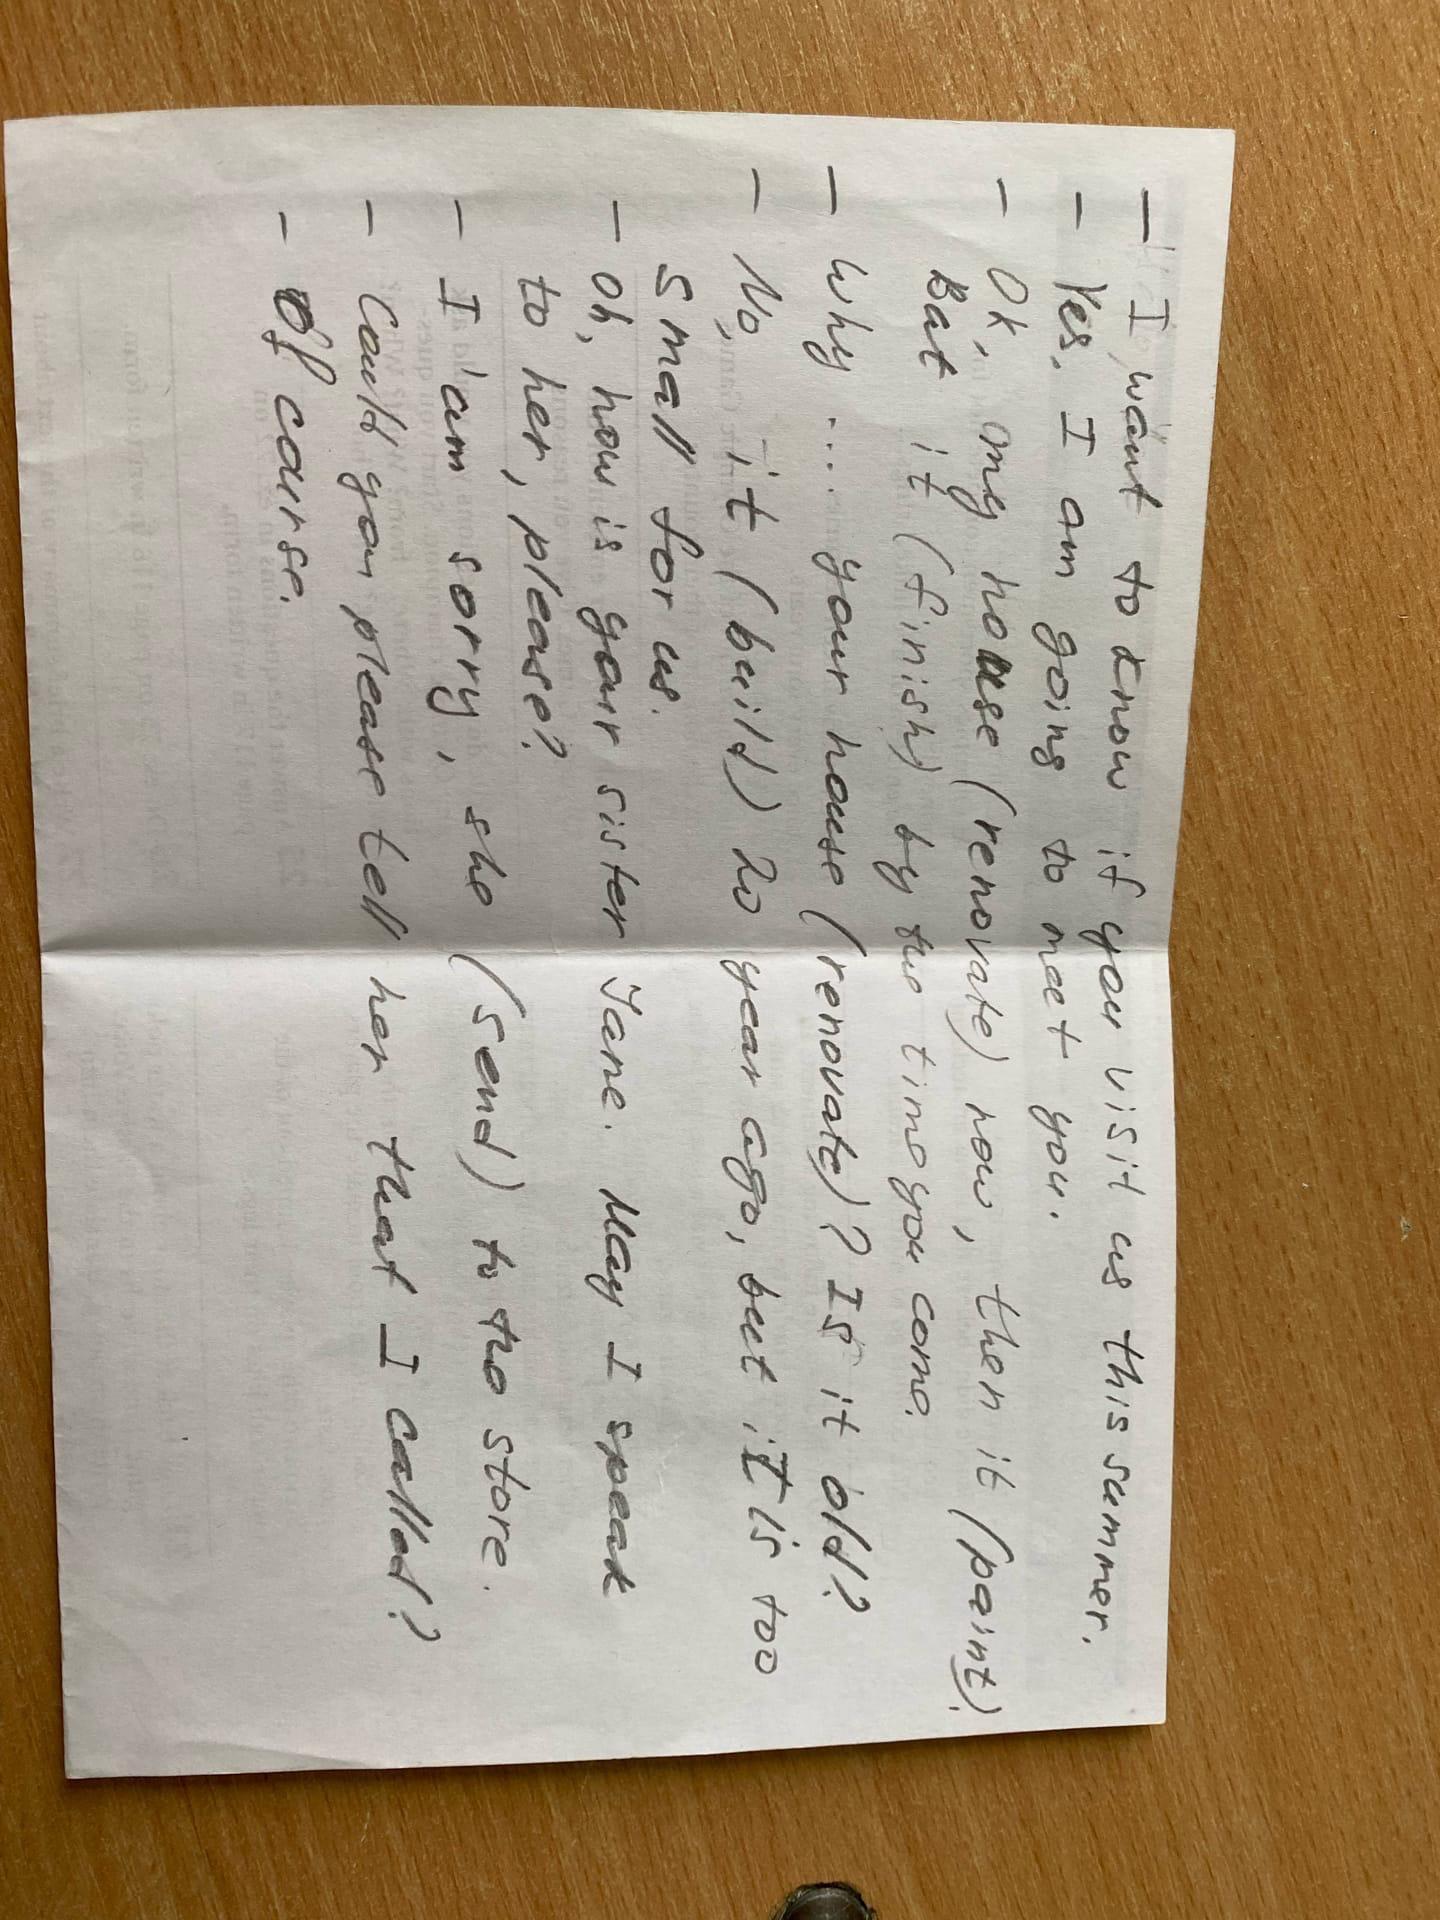 — I want to know if you visit us this summer.
– Yes. I am going to meet you.
– Ok, my house (renovate) now, then it (paint).
Bat it (finish) by the time you come.
– Why ... your house (renovate)? Is it old?
– No, it (build) 20 year ago, but it is too
small for us.
– Oh, how is your sister Jane. May I speak
to her, please?
– I'am sorry, she (send) to the store.
– Could you please tell her that I called?
– Of course.